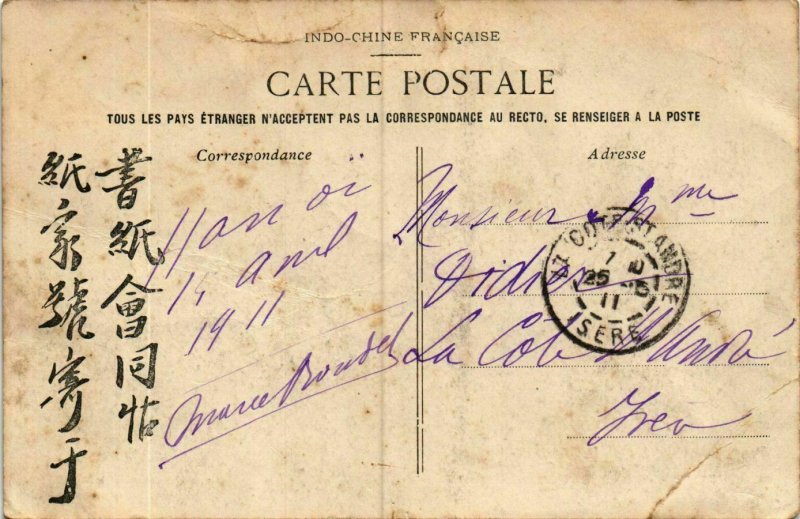 INDO-CHINE FRANÇAISE
CARTE POSTALE
TOUS LES PAYS ÉTRANGER N'ACCEPTENT PAS LA CORRESPONDANCE AU RECTO, SE RENSEIGER A LA POSTE
Correspondance
Adresse
書紙會同帖
紙家號寄于
Hanoï
14 avril
1911
Marcel
Monsieur & Mme
Didier
La Côte St André
Isère
LA COTE ST ANDRE
25
11
ISERE